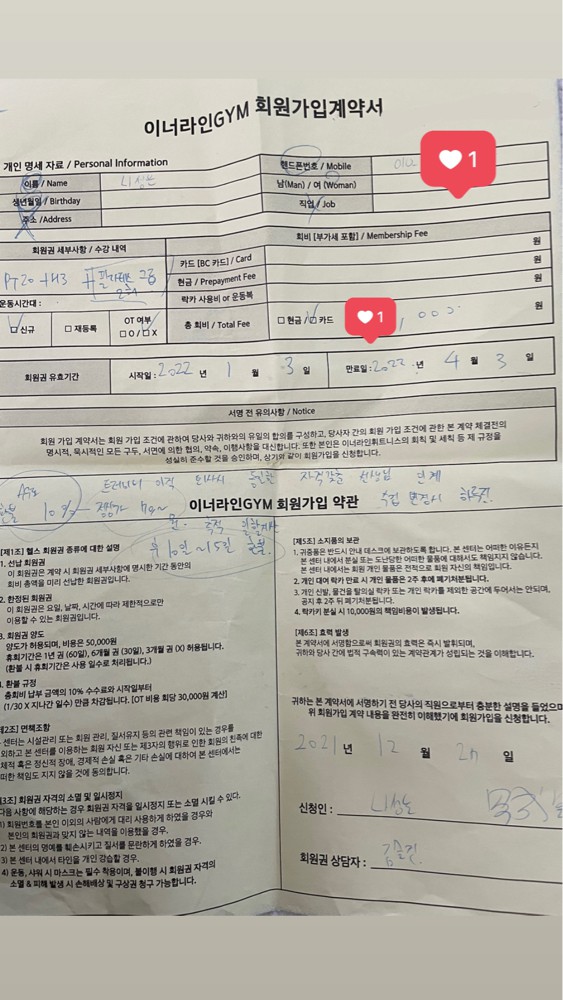 이너라인GYM 회원가입계약서
개인 명세 자료 / Personal Information
이름 / Name
핸드폰번호 / Mobile
1
생년월일 / Birthday
남(Man) / 여 (Woman)
주소 /Address
직업 / Job
회원권 세부사항 / 수강 내역
회비 [부가세 포함] / Membership Fee
카드 [BC 카드] / Card
원
PT 20 +
현금 / Prepayment Fee
원
락카 사용비 or 운동복
원
운동시간대 :
신규
재등록
OT 여부
O / X
총 회비 / Total Fee
현금 / 카드
1
원
회원권 유효기간
시작일 : 2022 년 1 월 3 일
만료일 : 2022 년 4 월 3 일
서명 전 유의사항 / Notice
회원 가입 계약서는 회원 가입 조건에 관하여 당사와 귀하와의 유일의 합의를 구성하고, 당사자 간의 회원 가입 조건에 관한 본 계약 체결전의
명시적, 묵시적인 모든 구두, 서면에 의한 협의, 약속, 이행사항을 대신합니다. 또한 본인은 이너라인휘트니스의 회칙 및 세칙 등 제 규정을
성실히 준수할 것을 승인하며, 상기와 같이 회원가입을 신청합니다.
트레이너 이직 퇴사시 동일한 자격갖춘 선생님 인계
10%
이너라인GYM 회원가입 약관
[제1조] 헬스 회원권 종류에 대한 설명
1. 선납 회원권
이 회원권은 계약 시 회원권 세부사항에 명시한 기간 동안의
회비 총액을 미리 선납한 회원권입니다.
2. 한정된 회원권
이 회원권은 요일, 날짜, 시간에 따라 제한적으로만
이용할 수 있는 회원권입니다.
3. 회원권 양도
양도가 허용되며, 비용은 50,000원
휴회기간은 1년 권 (60일), 6개월 권 (30일), 3개월 권 (X) 허용됩니다.
(환불 시 휴회기간은 사용 일수로 처리됩니다.)
4. 환불 규정
총회비 납부 금액의 10% 수수료와 시작일부터
(1/30 X 지나간 일수) 만큼 차감됩니다. [OT 비용 회당 30,000원 계산]
[제2조] 면책조항
센터는 시설관리 또는 회원 관리, 질서유지 등의 관련 책임이 있는 경우를
외하고 본 센터를 이용하는 회원 자신 또는 제3자의 행위로 인한 회원의 친족에 대한
체적 혹은 정신적 장애, 경제적 손실 혹은 기타 손실에 대하여 본 센터에서는
떠한 책임도 지지 않을 것에 동의합니다.
[제3조] 회원권 자격의 소멸 및 일시정지
다음 사항에 해당하는 경우 회원권 자격을 일시정지 또는 소멸 시킬 수 있다.
1) 회원번호를 본인 이외의 사람에게 대리 사용하게 하였을 경우와
본인의 회원권과 맞지 않는 내역을 이용했을 경우.
2) 본 센터의 명예를 훼손시키고 질서를 문란하게 하였을 경우.
3) 본 센터 내에서 타인을 개인 강습할 경우.
4) 운동, 샤워 시 마스크는 필수 착용이며, 불이행 시 회원권 자격의
소멸 & 피해 발생 시 손해배상 및 구상권 청구 가능합니다.
[제5조] 소지품의 보관
1. 귀중품은 반드시 안내 데스크에 보관하도록 합니다. 본 센터는 어떠한 이유든지
본 센터 내에서 분실 또는 도난당한 어떠한 물품에 대해서도 책임지지 않습니다.
본 센터 내에서는 회원 개인 물품은 전적으로 회원 자신의 책임입니다.
2. 개인 대여 락카 만료 시 개인 물품은 2주 후에 폐기처분됩니다.
3. 개인 신발, 물건을 탈의실 락카 또는 개인 락카를 제외한 공간에 두어서는 안되며,
공지 후 2주 뒤 폐기처분됩니다.
4. 락카키 분실 시 10,000원의 책임비용이 발생됩니다.
[제6조] 효력 발생
본 계약서에 서명함으로써 회원권의 효력은 즉시 발휘되며,
귀하와 당사 간에 법적 구속력이 있는 계약관계가 성립되는 것을 이해합니다.
귀하는 본 계약서에 서명하기 전 당사의 직원으로부터 충분한 설명을 들었으며
위 회원가입 계약 내용을 완전히 이해했기에 회원가입을 신청합니다.
2021 년 12 월 일
신청인 :
회원권 상담자 :